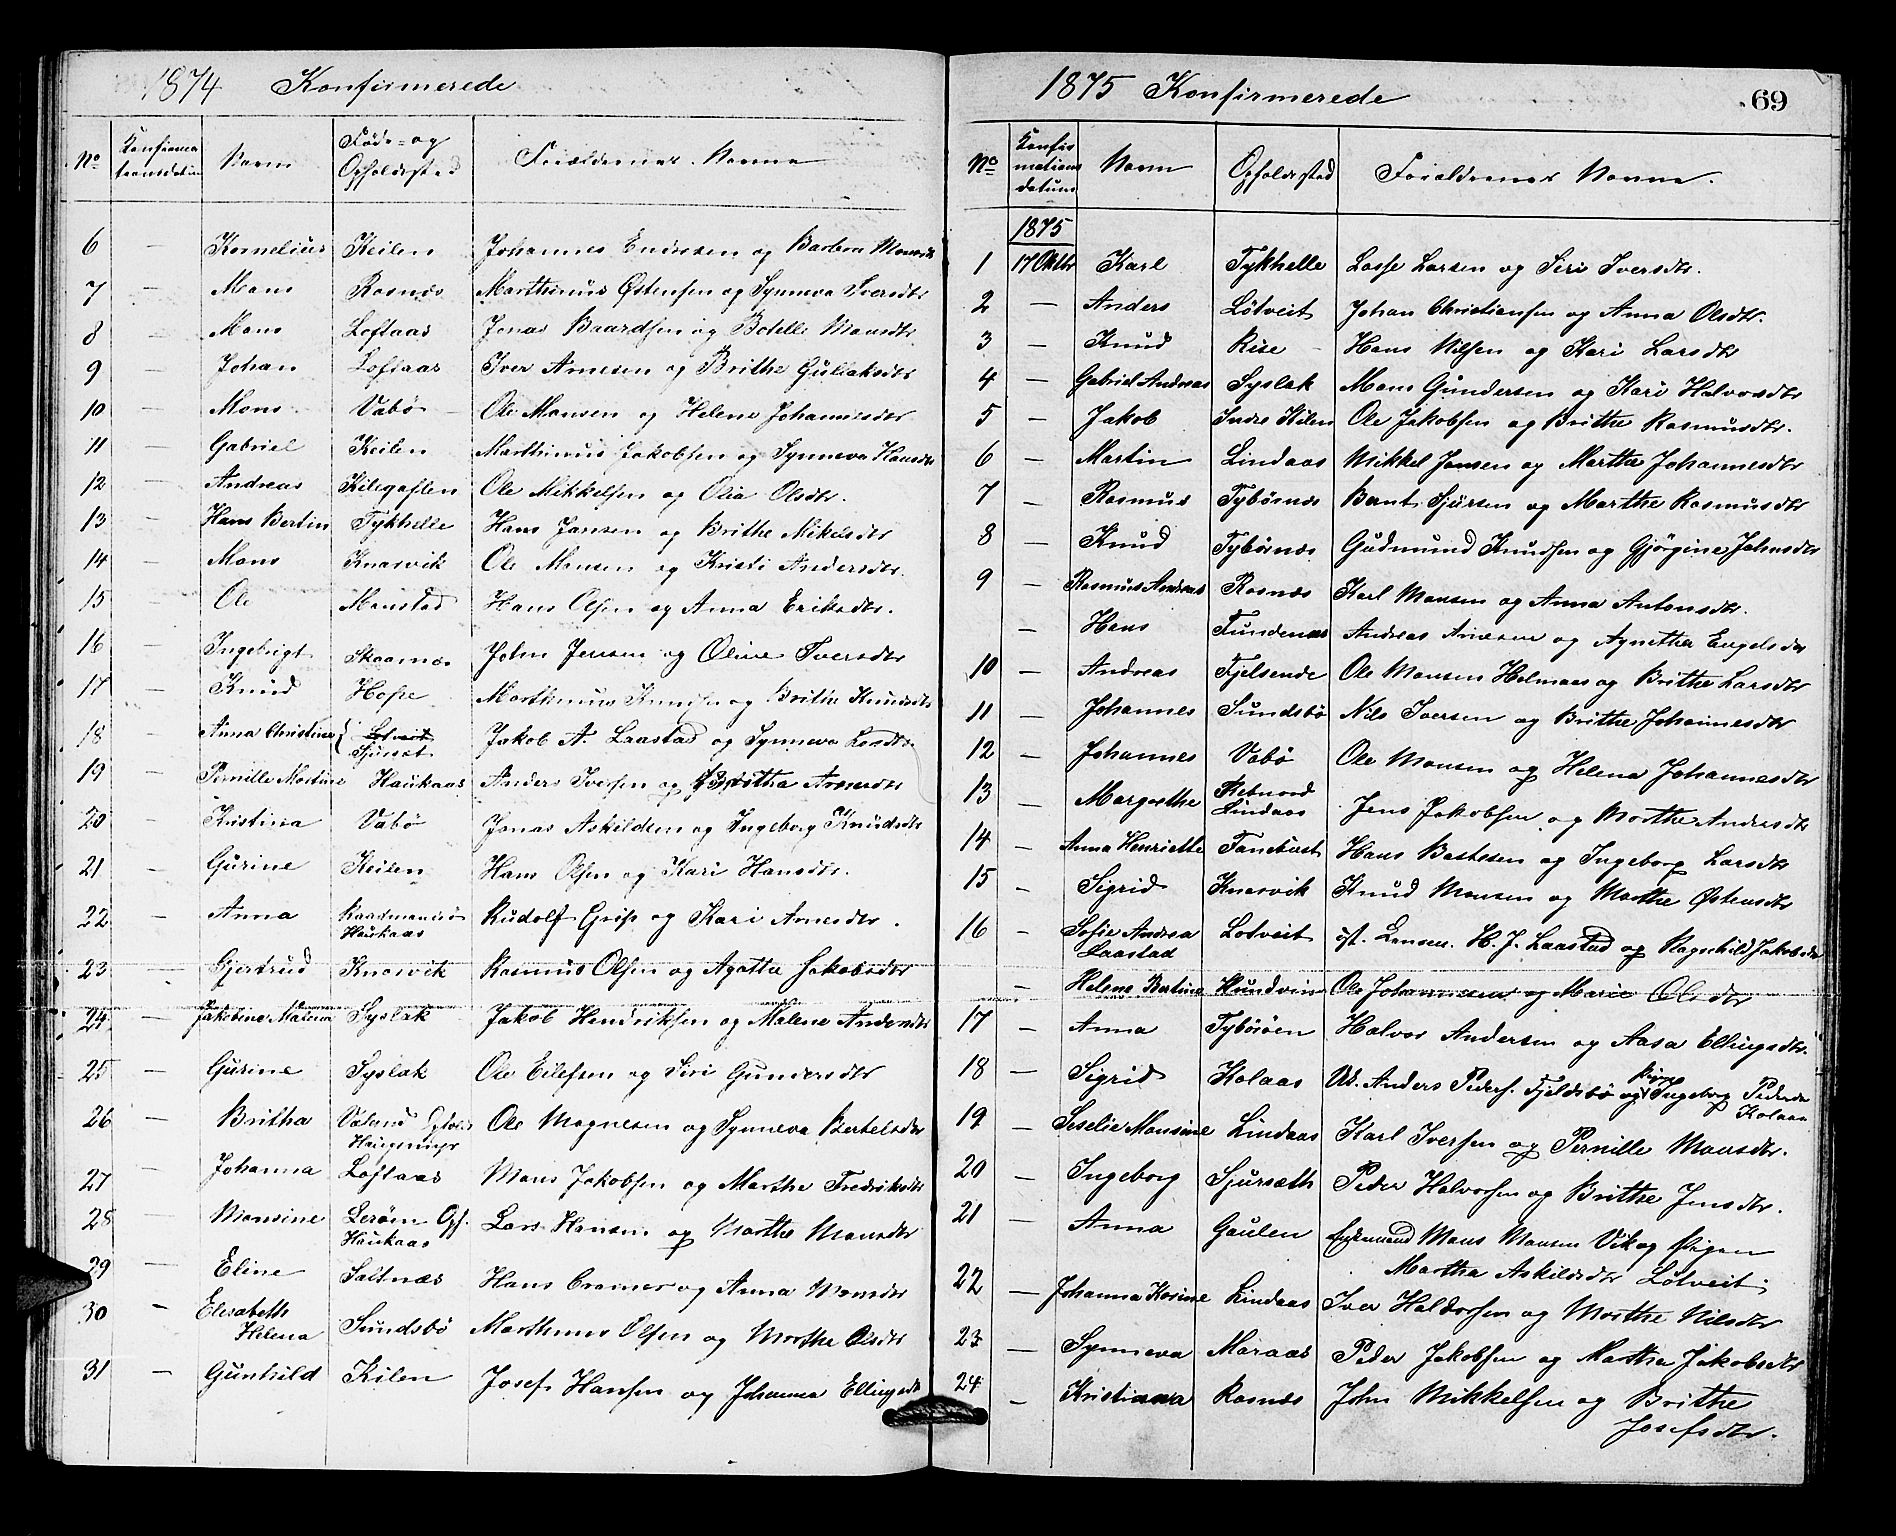 1874 Konfirmerede
No Konfirmationsdatum Navn Føde- og Opholdssted Forældrenes Navne
6 — Kornelius Keilen Johannes Endresen og Barbara Monsdtr
7 — Mons Rosnæs Marthinus Østensen og Synneva Iversdtr
8 — Mons Loftaas Jonas Baardsen og Botelle Monsdtr
9 — Johan Loftaas Iver Arnesen og Brithe Gullaksdtr
10 — Mons Vabø Ole Monsen og Helene Johannesdtr
11 — Gabriel Keilen Marthinus Jakobsen og Synneva Hansdtr
12 — Andreas Kilegaflen Ole Mikkelsen og Olia Olsdtr.
13 — Hans Bertin Tykhelle Hans Jansen og Brithe Mikelsdtr
14 — Mons Knarvik Ole Monsen og Kristi Andersdtr.
15 — Ole Monstad Hans Olsen og Anna Eriksdtr.
16 — Ingebrigt Skaanæs John Jensen og Oline Iversdtr
17 — Knud Hope Marthinus Knudsen og Brithe Knudsdtr
18 — Anna Christine Lotveit Sjursæt Jakob A. Laastad og Synneva Larsdtr.
19 — Pernille Martine Haukaas Anders Iversen og Arnesdtr
20 — Kristina Vabø Jonas Askildsen og Ingeborg Knudsdtr
21 — Gurine Keilen Hans Olsen og Kari Hansdtr.
22 — Anna Haukaas Rudolf Grip og Kari Arnesdtr.
23 — Gjertrud Knarvik Rasmus Olsen og Agathe Jakobsdtr
24 — Jakobine Malena Syslak Jakob Hendriksen og Malene Andersdtr
25 — Gurine Syslak Ole Eilefsen og Siri Gundersdtr
26 — Britha Ole Magnesen og Synneva Bertelsdtr
27 — Johanna Loftaas Mons Jakobsen og Marthe Fredriksdtr
28 — Monsine Lerøen Opf. Haukaas Lars Hansen og Marthe Monsdtr
29 — Eline Saltnæs Hans Cramer og Anna Monsdtr
30 — Elisabeth Helena Sundsbø Marthinus Olsen og Marthe Olsdtr
31 — Gunhild Kilen Josef Hansen og Johanna Ellingsdtr
1875 Konfirmerede 69
No Konfirmationsdatum Navn Opholdssted Forældrenes Navne.
1875
1 17 Oktbr Karl Tykhelle Lasse Larsen og Siri Iversdtr.
2 — Anders Løtveit Johan Christiansen og Anna Olsdtr.
3 — Knud Rise Hans Nilsen og Kari Larsdtr
4 — Gabriel Andreas Syslak Mons Gundersen og Kari Halvorsdtr
5 — Jakob Indre Kilen Ole Jakobsen og Brithe Rasmusdtr.
6 — Martin Lindaas Mikkel Jansen og Marthe Johannesdtr
7 — Rasmus Tybørnæs Bernt Sjursen og Marthe Rasmusdtr
8 — Knud Tybørnæs Gudmund Knudsen og Gjørgine Johnsdtr
9 — Rasmus Andreas Rosnæs Karl Monsen og Anna Antonsdtr.
— Hans Fundenæs Andreas Arnesen og Agnethe Engelsdtr
10 — Andreas Fjelsende Ole Monsen Holmaas og Brithe Larsdtr
11 — Johannes Sundsbø Nils Iversen og Brithe Johannesdtr
12 — Johannes Vabø Ole Monsen og Helena Johannesdtr
13 — Margrethe Lindaas Jens Jakobsen og Marthe Andersdtr
14 — Anna Henriette Fanebust Hans Bastesen og Ingeborg Larsdtr
15 — Sigrid Knarvik Knud Monsen og Marthe Østensdtr
16 — Sofie Andrea Laastad Lotveit H. J. Laastad og Ragnhild Jakobsdtr
— Helene Bertine Hundvin Ole Johannessen og Marie Olsdtr
17 — Anna Tybørøen Halvor Andersen og Aasa Ellingsdtr.
18 — Sigrid Kolaas Uk. Anders Peders. Fjeldsbø og Pigen Ingeborg Pedersdtr Kolaas
19 — Seselie Monsine Lindaas Karl Iversen og Pernille Monsdtr.
20 — Ingeborg Sjursæth Peder Halvorsen og Brithe Jensdtr.
21 — Anna Gaulen Enkemand Mons Monsen Vik og Pigen Martha Askildsdtr Løtveit
22 — Johanna Karine Lindaas Iver Haldorsen og Marthe Nilsdtr
23 — Synneva Maraas Peder Jakobsen og Marthe Jakobsdtr
24 — Kristianna Rosnæs John Mikkelsen og Brithe Josefsdtr.